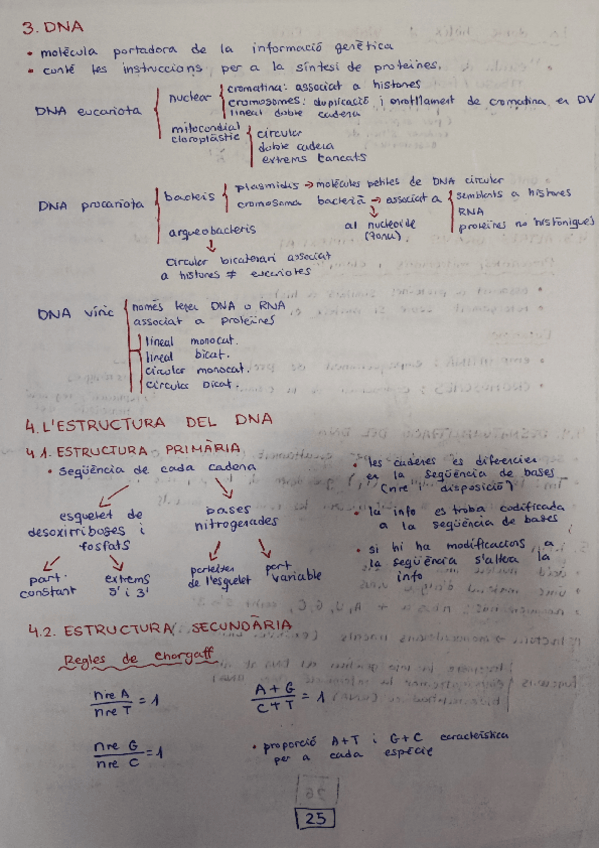 3. DNA
• molècula portadora de la informació genètica
• conté les instruccions per a la síntesi de proteïnes.
DNA eucariota
nuclear
cromatina: associat a histones
cromosomes: duplicació i enrotllament de cromatina en DV
lineal doble cadena
mitocondial
cloroplàstic
circular
doble cadena
extrems tancats
DNA procariota
bacteris
plasmidis → molècules petites de DNA circular
cromosoma bacterià → associat a
semblants a histones
RNA
proteïnes no històniques
al nucleoide
(zona)
arqueobacteris
circular bicatenari associat
a histones ≠ eucariotes
DNA víric
només tenen DNA o RNA
associat a proteïnes
lineal monocat.
lineal bicat.
circular monocat.
circular bicat.
4. L'ESTRUCTURA DEL DNA
4.1. ESTRUCTURA PRIMÀRIA
• seqüència de cada cadena
esquelet de
desoxirriboses i
fosfats
part
constant
extrems
5' i 3'
bases
nitrogenades
pengen
de l'esquelet
part
variable
• les cadenes es diferencien
en la seqüència de bases
(nre i disposició)
• la info es troba codificada
a la seqüència de bases
• si hi ha modificacions a
la seqüència s'altera la
info
4.2. ESTRUCTURA SECUNDÀRIA
Regles de Chargaff
nre A / nre T = 1
A + G / C + T = 1
nre G / nre C = 1
• proporció A+T i G+C característica
per a cada espècie
25